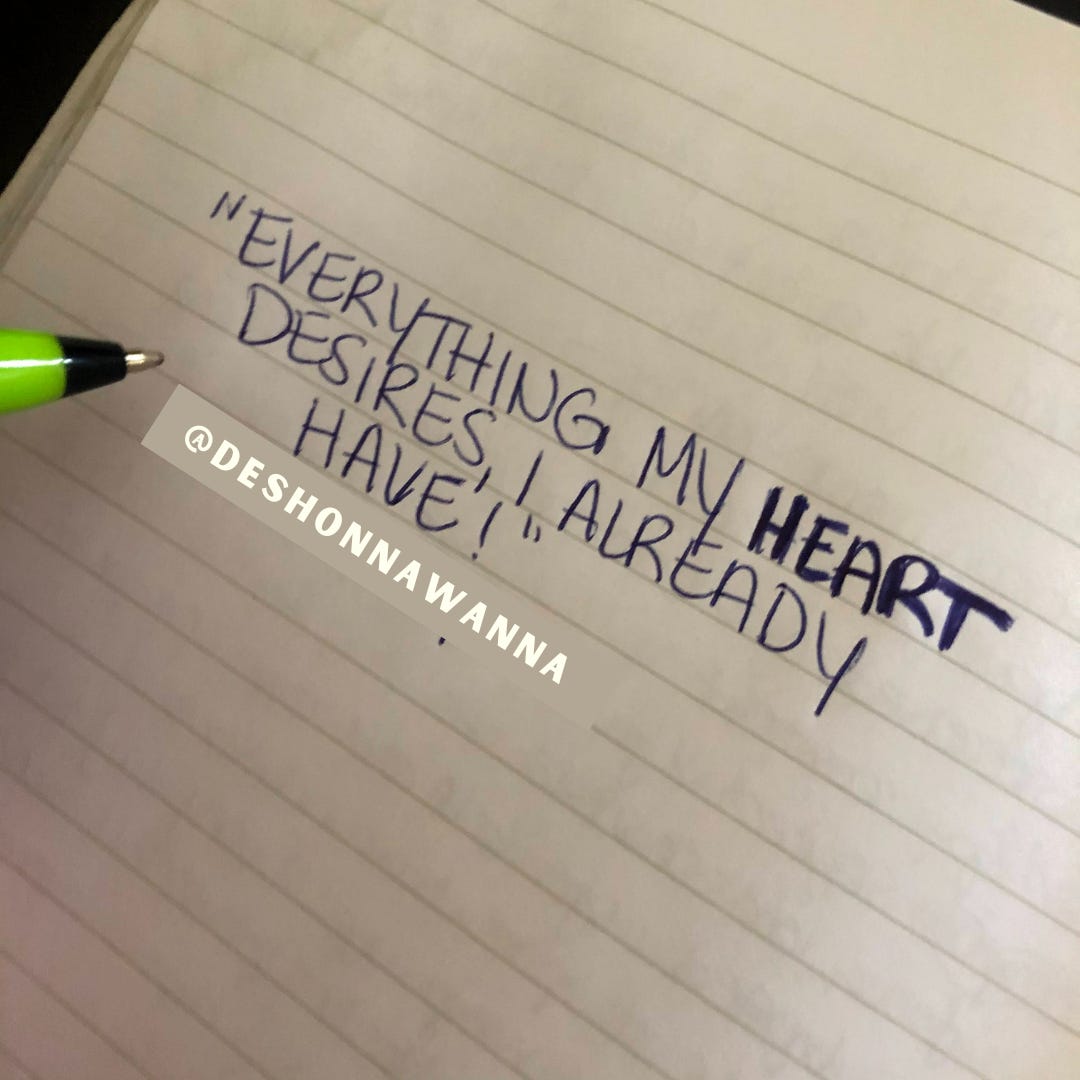 "EVERYTHING MY HEART
DESIRES, I ALREADY
HAVE!"
@DESHONNAWANNA